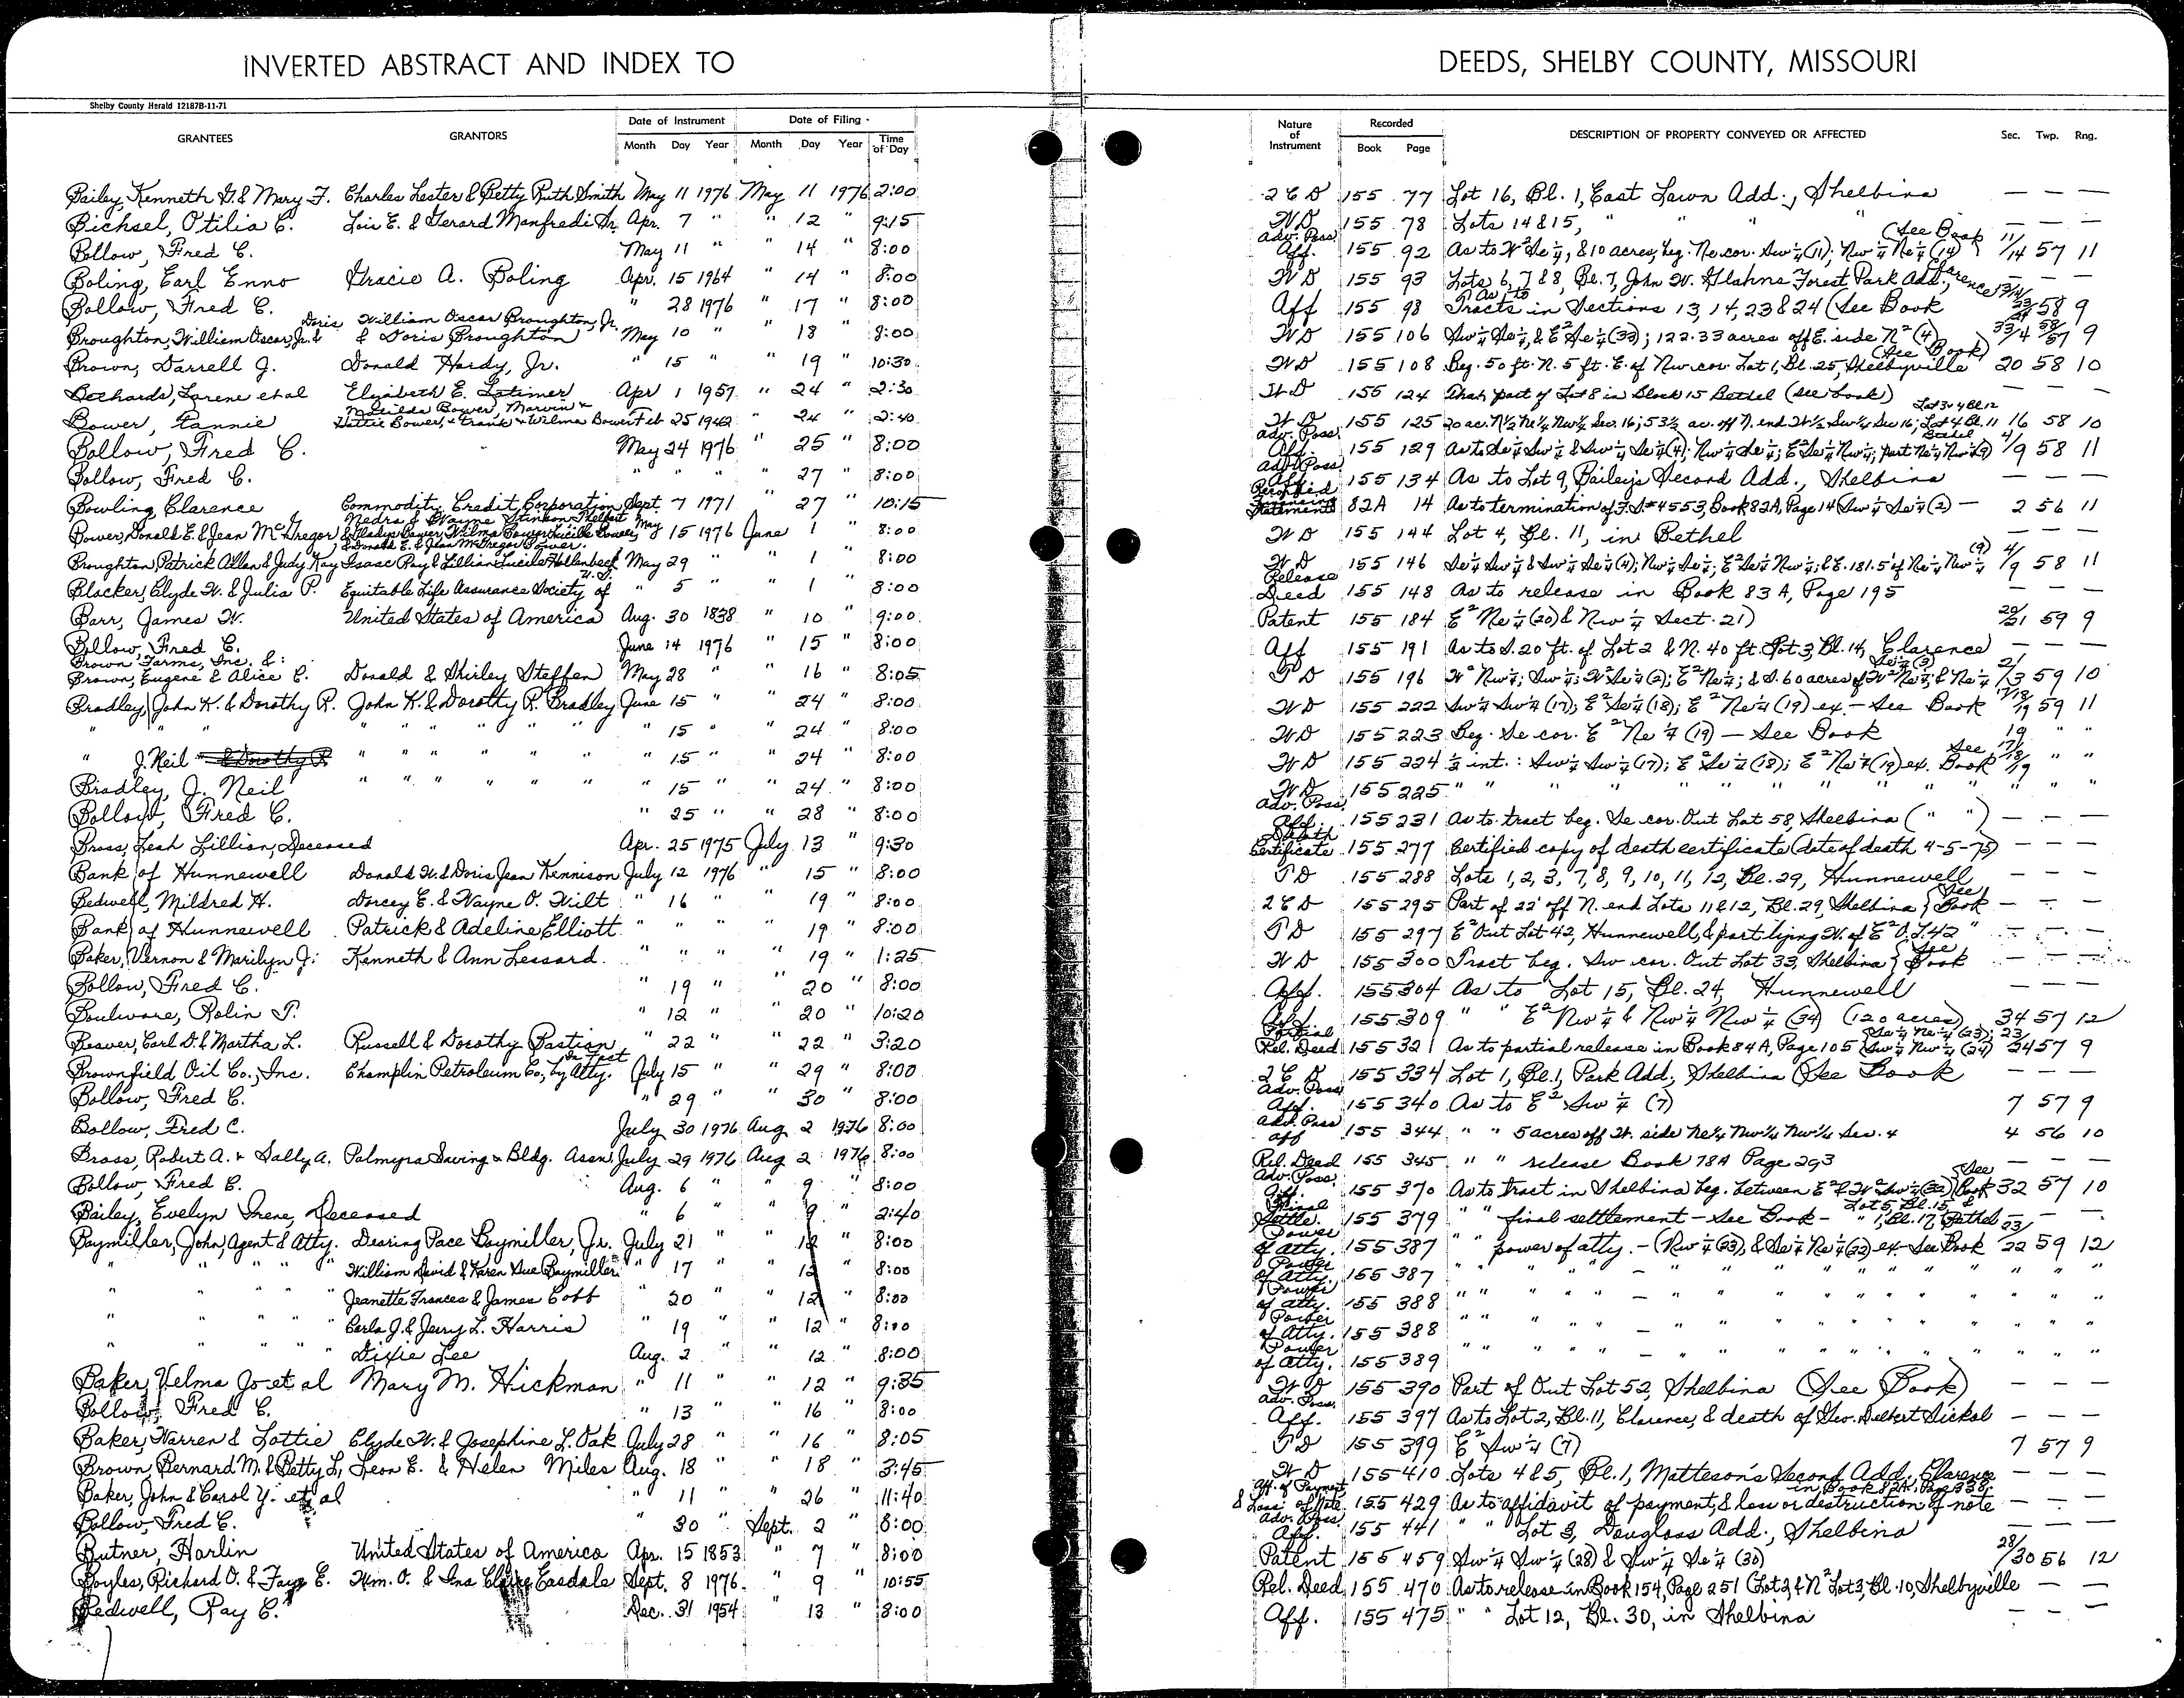 INVERTED ABSTRACT AND INDEX TO DEEDS, SHELBY COUNTY, MISSOURI
Shelby County Herald 12187B-11-71
GRANTEES GRANTORS Date of Instrument Month Day Year Date of Filing Month Day Year Time of Day Nature of Instrument Recorded Book Page DESCRIPTION OF PROPERTY CONVEYED OR AFFECTED Sec. Twp. Rng.
Bailey, Kenneth G. & Mary F. Charles Lester & Betty Ruth Smith May 11 1976 May 11 1976 2:00 2 E D 155 77 Lot 16, Bl. 1, East Lawn Add., Shelbina — — —
Bichsel, Otilia C. Lois E. & Gerard Manfredi Sr. Apr. 7 " " 12 " 9:15 W D 155 78 Lots 14 & 15, " " " — — —
Bollow, Fred C. May 11 " " 14 " 8:00 Adv. Poss. Aff. 155 92 As to W² Se ¼, & 10 acres, beg. Ne cor. Sw ¼ (11); Nw ¼ Ne ¼ (14) (See Book 11/14 57 11
Boling, Earl Enno Gracie A. Boling Apr. 15 1964 " 14 " 8:00 W D 155 93 Lots 6, 7 & 8, Bl. 7, John W. Glahns Forest Park Add., Clarence — — —
Bollow, Fred C. " 28 1976 " 17 " 8:00 Aff 155 98 As to Tracts in Sections 13, 14, 23 & 24 (See Book 13/14/23/24 58 9
Broughton, William Oscar, Jr. & Doris William Oscar Broughton, Jr. & Doris Broughton May 10 " " 18 " 8:00 W D 155 106 Sw ¼ Se ¼, & E² Se ¼ (33); 122.33 acres off E. side N² (4) 33/4 58/57 9
Brown, Darrell J. Donald Hardy, Jr. " 15 " " 19 " 10:30 W D 155 108 Beg. 50 ft. N. 5 ft. E. of Nw cor. Lot 1, Bl. 25, Shelbyville (See Book) 20 58 10
Lorene et al Elizabeth E. Latimer Apr 1 1957 " 24 " 2:30 W D 155 124 That part of Lot 8 in Block 15 Bethel (see book) — — —
Bower, Fannie Matilda Bower, Marvin & Hettie Bower, & Frank & Wilma Bower Feb 25 1942 " 24 " 2:40 W D 155 125 20 ac. N½ Ne¼ Nw¼ Sec. 16; 53½ ac. off N. end W½ Sw¼ Sec 16; Lot 4 Bl. 11 Lot 3 & 4 Bl. 12 Bethel 16 58 10
Bollow, Fred C. May 24 1976 " 25 " 8:00 Adv. Poss. Aff. 155 129 As to Se ¼ Sw ¼ & Sw ¼ Se ¼ (4); Nw ¼ Se ¼; E² Se ¼ Nw ¼; part Ne ¼ Nw ¼ (9) 4/9 58 11
Bollow, Fred C. " " " " 27 " 8:00 Adv. Poss. Aff 155 134 As to Lot 9, Bailey's Second Add., Shelbina — — —
Bowling Clarence Commodity Credit Corporation Sept. 7 1971 " 27 " 10:15 Financing Statements 82A 14 As to termination of F.S. # 4553, Book 82A, Page 14 (Sw ¼ Se ¼ (2) — 2 56 11
Bower, Donald E. & Jean McGregor Nedra & Wayne Stinson, Delbert & Gladys Bower, Wilma Bower, Lucille Bower, & Donald E. & Jean McGregor Bower. May 15 1976 June 1 " 8:00 W D 155 144 Lot 4, Bl. 11, in Bethel — — —
Broughton, Patrick Allen & Judy Kay Isaac Ray & Lillian Lucile Hollenbeck May 29 " " 1 " 8:00 W D 155 146 Se ¼ Sw ¼ & Sw ¼ Se ¼ (4); Nw ¼ Se ¼; E² Se ¼ Nw ¼; & E. 181.5' of Ne ¼ Nw ¼ (9) 4/9 58 11
Blocker, Clyde W. & Julia P. Equitable Life Assurance Society of U.S. " 5 " " 1 " 8:00 Release Deed 155 148 As to release in Book 83 A, Page 195 — — —
Barr, James W. United States of America Aug. 30 1838 " 10 " 9:00 Patent 155 184 E² Ne ¼ (20) & Nw ¼ Sect. 21) 20/21 59 9
Bollow, Fred C. June 14 1976 " 15 " 8:00 Aff 155 191 As to S. 20 ft. of Lot 2 & N. 40 ft. Lot 3, Bl. 14, Clarence — — —
Brown Farms, Inc. & Brown, Eugene & Alice C. Donald & Shirley Steffen May 28 " " 16 " 8:05 T D 155 196 W² Nw ¼; Sw ¼; W² Se ¼ (2); E² Ne ¼; & S. 60 acres of W² Ne ¼; & Ne ¼ Se ¼ (3) 2/3 59 10
Bradley, John K. & Dorothy R. John K. & Dorothy R. Bradley June 15 " " 24 " 8:00 W D 155 222 Sw ¼ Sw ¼ (17); E² Se ¼ (18); E² Ne ¼ (19) ex. — See Book 17/18/19 59 11
" " " " " " " " " " 15 " " 24 " 8:00 W D 155 223 Beg. Se cor. E² Ne ¼ (19) — See Book 19 " "
" J. Neil & Dorothy R. " " " " " " " 15 " " 24 " 8:00 W D 155 224 ½ int.: Sw ¼ Sw ¼ (17); E² Se ¼ (18); E² Ne ¼ (19) ex. See Book 17/18/19 " "
Bradley, J. Neil " " " " " " " 15 " " 24 " 8:00 W D 155 225 " " " " " " " " " " " " "
Bollow, Fred C. " 25 " " 28 " 8:00 Adv. Poss. Aff. 155 231 As to tract beg. Se cor. Out Lot 58, Shelbina ( " " ) — — —
Bross, Leah Lillian, Deceased Apr. 25 1975 July 13 " 9:30 Death Certificate 155 277 Certified copy of death certificate (date of death 4-5-75) — — —
Bank of Hunnewell Donald W. & Doris Jean Kennison July 12 1976 " 15 " 8:00 T D 155 288 Lots 1, 2, 3, 7, 8, 9, 10, 11, 12, Bl. 29, Hunnewell — — —
Bedwell, Mildred H. Dorcey E. & Wayne O. Wilt " 16 " " 19 " 8:00 2 E D 155 295 Part of 22' off N. end Lots 11 & 12, Bl. 29, Shelbina } See Book — — —
Bank of Hunnewell Patrick & Adeline Elliott " " " " 19 " 8:00 T D 155 297 E² Out Lot 42, Hunnewell, & part lying W. of E² O.L. 42 " — — —
Baker, Vernon & Marilyn J. Kenneth & Ann Lessard " " " " 19 " 1:25 W D 155 300 Tract beg. Sw cor. Out Lot 33, Shelbina } See Book — — —
Bollow, Fred C. " 19 " " 20 " 8:00 Aff. 155 304 As to Lot 15, Bl. 24, Hunnewell — — —
Boulware, Rolin T. " 12 " " 20 " 10:20 Aff. 155 309 " " E² Nw ¼ & Nw ¼ Nw ¼ (34) (120 acres) 34 57 12
Beaver, Carl D. & Martha L. Russell & Dorothy Bastian " 22 " " 22 " 3:20 Partial Rel. Deed 155 321 As to partial release in Book 84 A, Page 105 (Se ¼ Ne ¼ (23); Sw ¼ Nw ¼ (24) 23/24 57 9
Brownfield Oil Co., Inc. Champlin Petroleum Co., by Atty. In Fact July 15 " " 29 " 8:00 2 E D 155 334 Lot 1, Bl. 1, Park Add., Shelbina (See Book — — —
Bollow, Fred C. " 29 " " 30 " 8:00 Adv. Poss. Aff. 155 340 As to E² Sw ¼ (7) 7 57 9
Bollow, Fred C. July 30 1976 Aug 2 1976 8:00 Adv. Poss aff 155 344 " " 5 acres off W. side Ne¼ Nw¼ Nw¼ Sec. 4 4 56 10
Bross, Robert A. & Sally A. Palmyra Saving & Bldg. Assn. July 29 1976 Aug 2 1976 8:00 Rel. Deed 155 345 " " release Book 78A Page 293 — — —
Bollow, Fred C. Aug. 6 " " 9 " 8:00 Adv. Poss. Aff. 155 370 As to tract in Shelbina beg. between E² & W² Sw ¼ (32) (See Book 32 57 10
Bailey, Evelyn Irene, Deceased " 6 " " 9 " 2:40 Final Settle. 155 379 " " final settlement — See Book — Lot 5, Bl. 15, & " 1, Bl. 17, Bethel — — —
Baymiller, John, Agent & Atty. Dearing Pace Baymiller, Jr. July 21 " " 12 " 8:00 Power of Atty. 155 387 " " power of atty. — (Nw ¼ (23), & Se ¼ Ne ¼ (22) ex. See Book 23/22 59 12
" " " " William David & Karen Sue Baymiller " 17 " " 12 " 8:00 Power of Atty. 155 387 " " " " — " " " " " " " " "
" " " " Jeanette Frances & James Cobb " 20 " " 12 " 8:00 Power of Atty. 155 388 " " " " — " " " " " " " " "
" " " " Carla J. & Jerry L. Harris " 19 " " 12 " 8:00 Power of Atty. 155 388 " " " " — " " " " " " " " "
" " " " Dixie Lee Aug. 2 " 12 " 8:00 Power of Atty. 155 389 " " " " — " " " " " " " " "
Baker, Velma Jo et al Mary M. Hickman " 11 " " 12 " 9:35 W D 155 390 Part of Out Lot 52, Shelbina (See Book) — — —
Bollow, Fred C. " 13 " " 16 " 8:00 Adv. Poss. Aff. 155 397 As to Lot 2, Bl. 11, Clarence, & death of Geo. Delbert Sickal — — —
Baker, Warren & Lottie Clyde W. & Josephine L. Oak July 28 " " 16 " 8:05 T D 155 399 E² Sw ¼ (7) 7 57 9
Brown, Bernard M. & Betty L. Leon E. & Helen Miles Aug. 18 " " 18 " 3:45 W D 155 410 Lots 4 & 5, Bl. 1, Matteson's Second Add., Clarence — — —
Baker, John & Carol Y. et al " 11 " " 26 " 11:40 Aff. of Payment & Loss of Note 155 429 As to affidavit of payment, & loss or destruction of note in Book 82A, Page 338 — — —
Bollow, Fred C. " 30 " Sept. 2 " 8:00 Adv. Poss. Aff. 155 441 " " Lot 3, Douglass Add., Shelbina — — —
Butner, Harlin United States of America Apr. 15 1853 " 7 " 8:00 Patent 155 459 Sw ¼ Sw ¼ (28) & Sw ¼ Se ¼ (30) 28/30 56 12
Boyles, Richard O. & Faye E. Wm. O. & Ina Claire Easdale Sept. 8 1976 " 9 " 10:55 Rel. Deed 155 470 As to release in Book 154, Page 251 (Lot 2, & N² Lot 3, Bl. 10, Shelbyville — —
Bedwell, Ray C. Dec. 31 1954 " 13 " 8:00 Aff. 155 475 " " Lot 12, Bl. 30, in Shelbina — — —